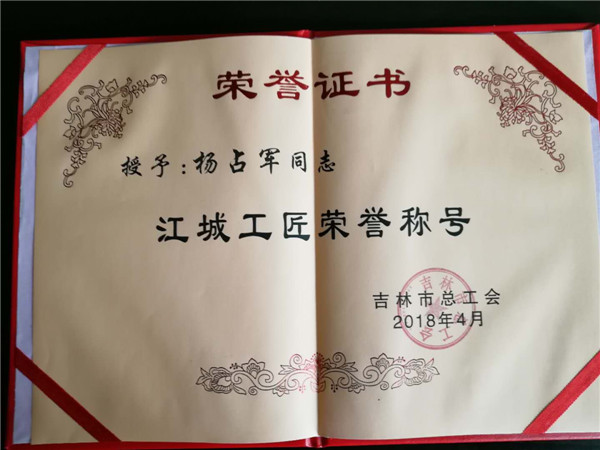 荣誉证书
授予：杨占军同志
江城工匠荣誉称号
吉林市总工会
2018年4月